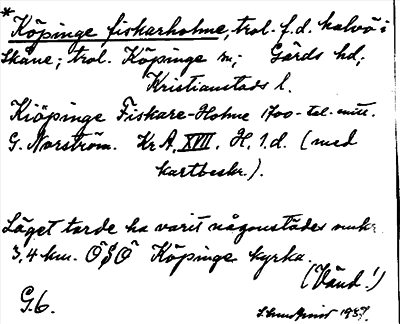 * Köpinge fiskarholme, trol. f.d. halvö i
Skåne; trol. Köpinge sn; Gärds hd;
Kristianstads l.
Kiöpinge Fiskare-Holme 1700-tal. mitt.
G. Norström. Kr A. XVII. H. 1. d. (med
kartbeskr.).
Läget torde ha varit någonstädes omkr.
3,4 km. ÖSÖ Köpinge kyrka.
(Vänd!)
G. 6. 1937.